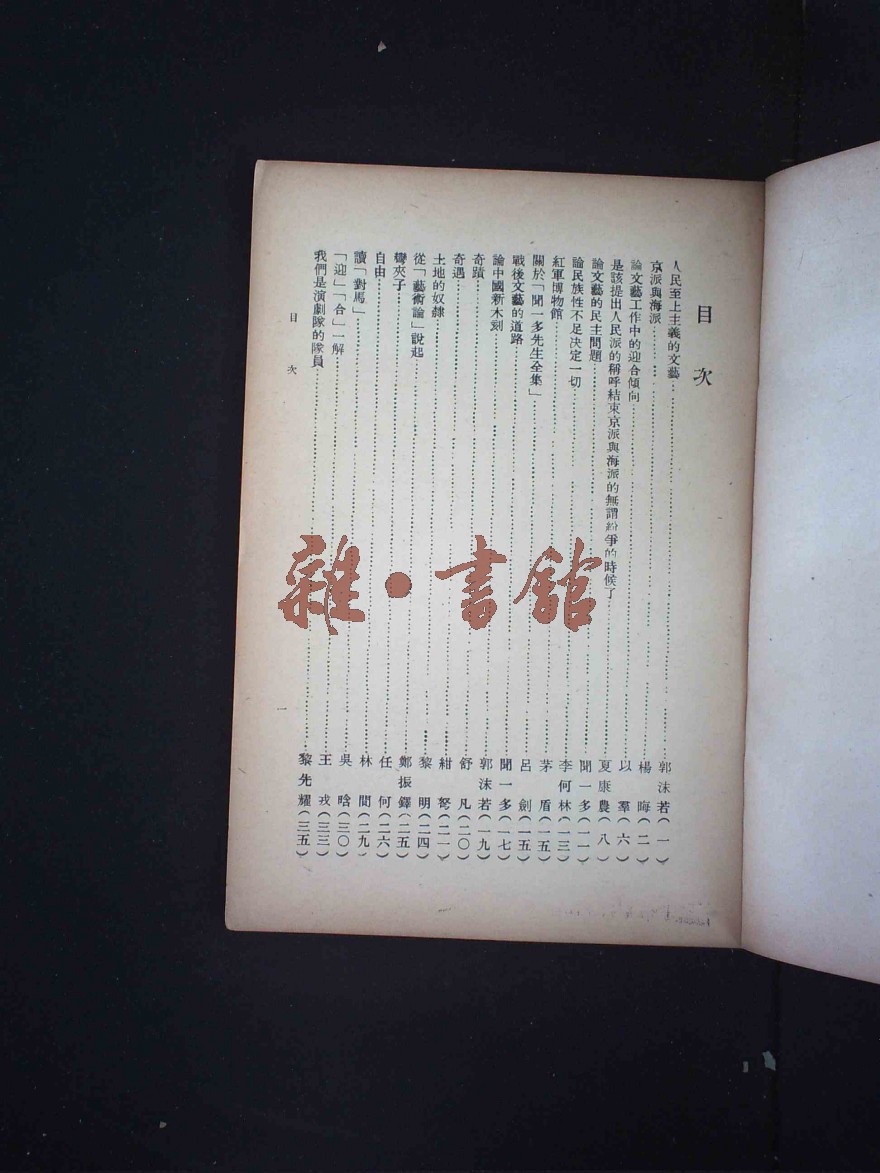 目次
人民至上主義的文藝……郭沫若(一)
京派與海派……楊晦(二)
論文藝工作中的迎合傾向……以羣(六)
是該提出人民派的稱呼結束京派與海派的無謂紛爭的時候了……夏康農(八)
論文藝的民主問題……聞一多(一一)
論民族性不足決定一切……李何林(一三)
紅軍博物館……茅盾(一五)
關於「聞一多先生全集」……呂劍(一五)
戰後文藝的道路……聞一多(一七)
論中國新木刻……郭沫若(一九)
奇蹟……舒凡(二〇)
奇遇……紺弩(二一)
土地的奴隸……黎明(二四)
從「藝術論」說起……鄭振鐸(二五)
彎夾子……任何(二六)
自由……林間(二九)
讀「對馬」……吳晗(三〇)
「迎」「合」一解……王戎(三三)
我們是演劇隊的隊員……黎先耀(三五)
目次
一
雜·書館